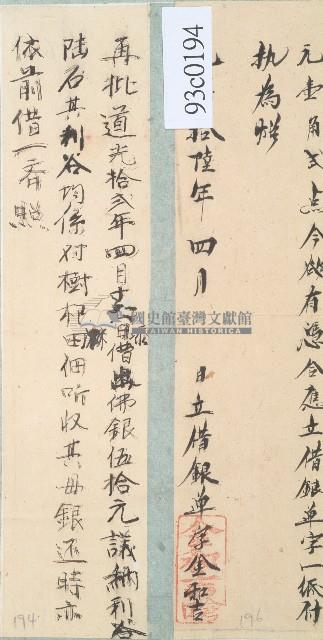 元壹角弍点今欲有憑合應立借銀单字一紙付
執為炤
拾陸年四月 日立借銀单字金和吉
再批道光拾弍年四月十六日借出佛銀伍拾元議納利谷
陸石其利谷均係对樹根田佃听收其母銀还時亦
依前借一齊照
93c0194
國史館臺灣文獻館
TAIWAN HISTORICA
194
196